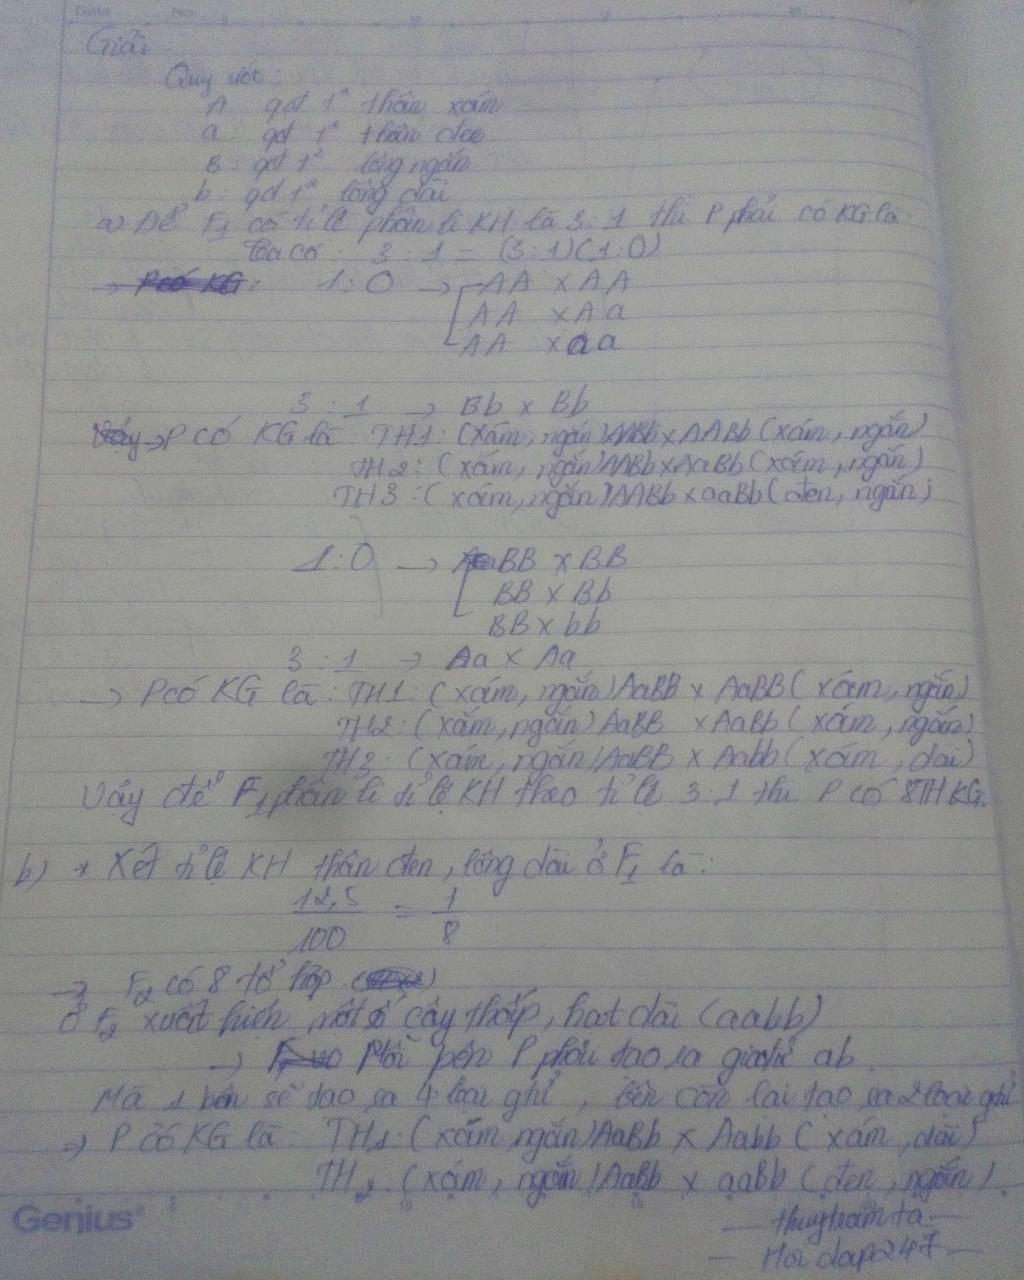 Date No
Giải:
Quy ước:
A: qđ t² thân xám
a: qđ t² thân đen
B: qđ t² lông ngắn
b: qđ t² lông dài
a) Để F1 có tỉ lệ phân li KH là 3:1 thì P phải có KG là:
Ta có: 3:1 = (3:1)(1:0)
→ P có KG: 1:0 → AA x AA
AA x Aa
AA x aa
3:1 → Bb x Bb
→ P có KG là: TH1: (xám, ngắn) AABb x AABb (xám, ngắn)
TH2: (xám, ngắn) AABb x AaBb (xám, ngắn)
TH3: (xám, ngắn) AABb x aaBb (đen, ngắn)
1:0 → BB x BB
BB x Bb
BB x bb
3:1 → Aa x Aa
→ P có KG là: TH1: (xám, ngắn) AaBB x AaBB (xám, ngắn)
TH2: (xám, ngắn) AaBB x AaBb (xám, ngắn)
TH3: (xám, ngắn) AaBB x Aabb (xám, dài)
Vậy để F1 phân li tỉ lệ KH theo tỉ lệ 3:1 thì P có 8TH KG.
b) * Xét tỉ lệ KH thân đen, lông dài ở F1 là:
12,5 / 100 = 1 / 8
→ F2 có 8 tổ hợp
Ở F2 xuất hiện cây thấp, hạt dài (aabb)
→ Mỗi bên P phải tạo ra giao tử ab
Mà 1 bên sẽ tạo ra 4 loại gtử, bên còn lại tạo ra 2 loại gtử
⇒ P có KG là: TH1: (xám, ngắn) AaBb x Aabb (xám, dài)
TH2: (xám, ngắn) AaBb x aaBb (đen, ngắn)
Genius
— thuytramta —
— Hoidap247 —